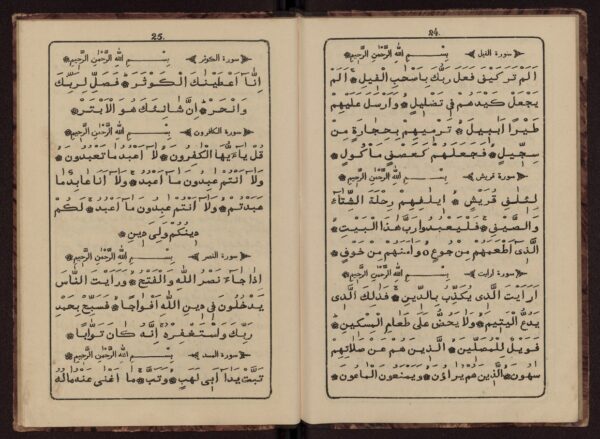 24.
سورة الفيل بِسْمِ اللهِ الرَّحْمٰنِ الرَّحِيمِ
اَلَمْ تَرَ كَيْفَ فَعَلَ رَبُّكَ بِاَصْحٰبِ الْفِيلِ ۞ اَلَمْ
يَجْعَلْ كَيْدَهُمْ فِي تَضْلِيلٍ ۞ وَاَرْسَلَ عَلَيْهِمْ
طَيْرًا اَبَابِيلَ ۞ تَرْمِيهِمْ بِحِجَارَةٍ مِنْ
سِجِّيلٍ ۞ فَجَعَلَهُمْ كَعَصْفٍ مَأْكُولٍ ۞
سورة قريش بِسْمِ اللهِ الرَّحْمٰنِ الرَّحِيمِ ۞
لِئِلٰفِ قُرَيْشٍ ۞ اِيلٰفِهِمْ رِحْلَةَ الشِّتَآءِ
وَالصَّيْفِ ۞ فَلْيَعْبُدُوا رَبَّ هٰذَا الْبَيْتِ ۞
اَلَّذِي اَطْعَمَهُمْ مِنْ جُوعٍ ۞ وَاٰمَنَهُمْ مِنْ خَوْفٍ ۞
سورة ارايت بِسْمِ اللهِ الرَّحْمٰنِ الرَّحِيمِ ۞
اَرَاَيْتَ الَّذِي يُكَذِّبُ بِالدِّينِ ۞ فَذٰلِكَ الَّذِي
يَدُعُّ الْيَتِيمَ ۞ وَلَا يَحُضُّ عَلَى طَعَامِ الْمِسْكِينِ ۞
فَوَيْلٌ لِلْمُصَلِّينَ ۞ اَلَّذِينَ هُمْ عَنْ صَلَاتِهِمْ
سٰهُونَ ۞ اَلَّذِينَ هُمْ يُرَاؤُنَ ۞ وَيَمْنَعُونَ الْمَاعُونَ ۞
25.
سورة الكوثر بِسْمِ اللهِ الرَّحْمٰنِ الرَّحِيمِ ۞
اِنَّا اَعْطَيْنٰكَ الْكَوْثَرَ ۞ فَصَلِّ لِرَبِّكَ
وَانْحَرْ ۞ اِنَّ شَانِئَكَ هُوَ الْاَبْتَرُ ۞
سورة الكافرون بِسْمِ اللهِ الرَّحْمٰنِ الرَّحِيمِ ۞
قُلْ يٰٓاَيُّهَا الْكٰفِرُونَ ۞ لَآ اَعْبُدُ مَا تَعْبُدُونَ ۞
وَلَآ اَنْتُمْ عٰبِدُونَ مَآ اَعْبُدُ ۞ وَلَآ اَنَا عَابِدٌ مَا
عَبَدْتُمْ ۞ وَلَآ اَنْتُمْ عٰبِدُونَ مَآ اَعْبُدُ ۞ لَكُمْ
دِينُكُمْ وَلِيَ دِينِ ۞
سورة النصر بِسْمِ اللهِ الرَّحْمٰنِ الرَّحِيمِ ۞
اِذَا جَآءَ نَصْرُ اللهِ وَالْفَتْحُ ۞ وَرَاَيْتَ النَّاسَ
يَدْخُلُونَ فِي دِينِ اللهِ اَفْوَاجًا ۞ فَسَبِّحْ بِحَمْدِ
رَبِّكَ وَاسْتَغْفِرْهُ اِنَّهُ كَانَ تَوَّابًا ۞
سورة المسد بِسْمِ اللهِ الرَّحْمٰنِ الرَّحِيمِ ۞
تَبَّتْ يَدَآ اَبِي لَهَبٍ وَتَبَّ ۞ مَآ اَغْنٰى عَنْهُ مَالُهُ